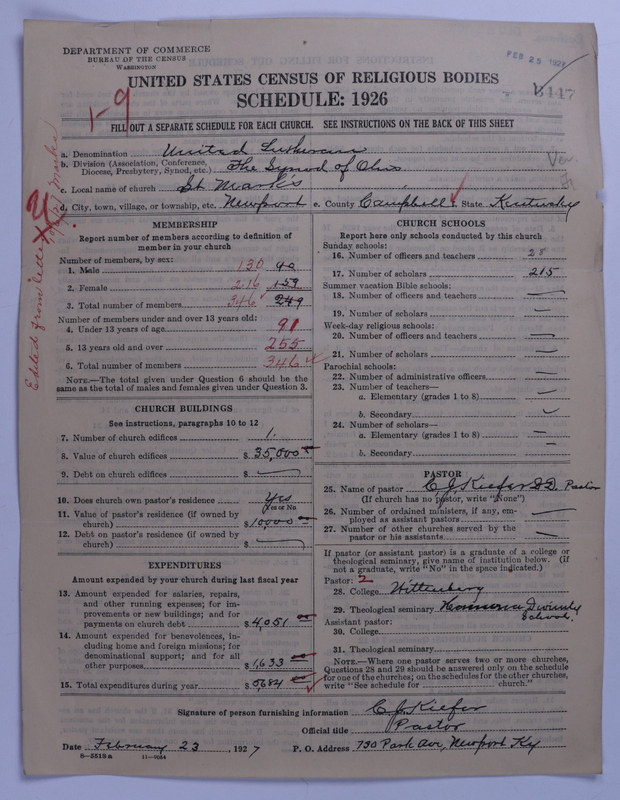 DEPARTMENT OF COMMERCE
BUREAU OF THE CENSUS
WASHINGTON
FEB 25 1927
UNITED STATES CENSUS OF RELIGIOUS BODIES
SCHEDULE: 1926
1-9
FILL OUT A SEPARATE SCHEDULE FOR EACH CHURCH. SEE INSTRUCTIONS ON THE BACK OF THIS SHEET
a. Denomination United Lutheran
b. Division (Association, Conference, Diocese, Presbytery, Synod, etc.) The Synod of Ohio
c. Local name of church St Mark's
d. City, town, village, or township, etc. Newport e. County Campbell State Kentucky
Edited from letter
MEMBERSHIP
Report number of members according to definition of
member in your church
Number of members, by sex:
1. Male 130 90
2. Female 216 159
3. Total number of members 346 249
Number of members under and over 13 years old:
4. Under 13 years of age 91
5. 13 years old and over 255
6. Total number of members 346
NOTE.—The total given under Question 6 should be
same as the total of males and females given under Question 3.
CHURCH BUILDINGS
See instructions, paragraphs 10 to 12
7. Number of church edifices 1
8. Value of church edifices $ 35,000 00
9. Debt on church edifices $ —
10. Does church own pastor's residence Yes
Yes or No
11. Value of pastor's residence (if owned by
church) $ 10000 00
12. Debt on pastor's residence (if owned by
church) $ —
EXPENDITURES
Amount expended by your church during last fiscal year
13. Amount expended for salaries, repairs,
and other running expenses; for im-
provements or new buildings; and for
payments on church debt $ 4,051 00
14. Amount expended for benevolences, in-
cluding home and foreign missions; for
denominational support; and for all
other purposes $ 1,633 00
15. Total expenditures during year $ 5684 00
CHURCH SCHOOLS
Report here only schools conducted by this church
Sunday schools:
16. Number of officers and teachers 28
17. Number of scholars 215
Summer vacation Bible schools:
18. Number of officers and teachers —
19. Number of scholars —
Week-day religious schools:
20. Number of officers and teachers —
21. Number of scholars —
Parochial schools:
22. Number of administrative officers —
23. Number of teachers—
a. Elementary (grades 1 to 8) —
b. Secondary —
24. Number of scholars—
a. Elementary (grades 1 to 8) —
b. Secondary —
PASTOR
25. Name of pastor C J Kiefer D.D. Pastor
(If church has no pastor, write "None")
26. Number of ordained ministers, if any, em-
ployed as assistant pastors —
27. Number of other churches served by the
pastor or his assistants —
If pastor (or assistant pastor) is a graduate of a college or
theological seminary, give name of institution below. (If
not a graduate, write "No" in the space indicated.)
Pastor: 2
28. College Wittenberg
29. Theological seminary Hamma Divinity
School
Assistant pastor:
30. College
31. Theological seminary
NOTE.—Where one pastor serves two or more churches,
Questions 28 and 29 should be answered only on the schedule
for one of the churches; on the schedules for the other churches,
write "See schedule for church."
Signature of person furnishing information C J Kiefer
Official title Pastor
Date February 23, 1927 P. O. Address 730 Park Ave, Newport Ky
8-5518a 11-9084